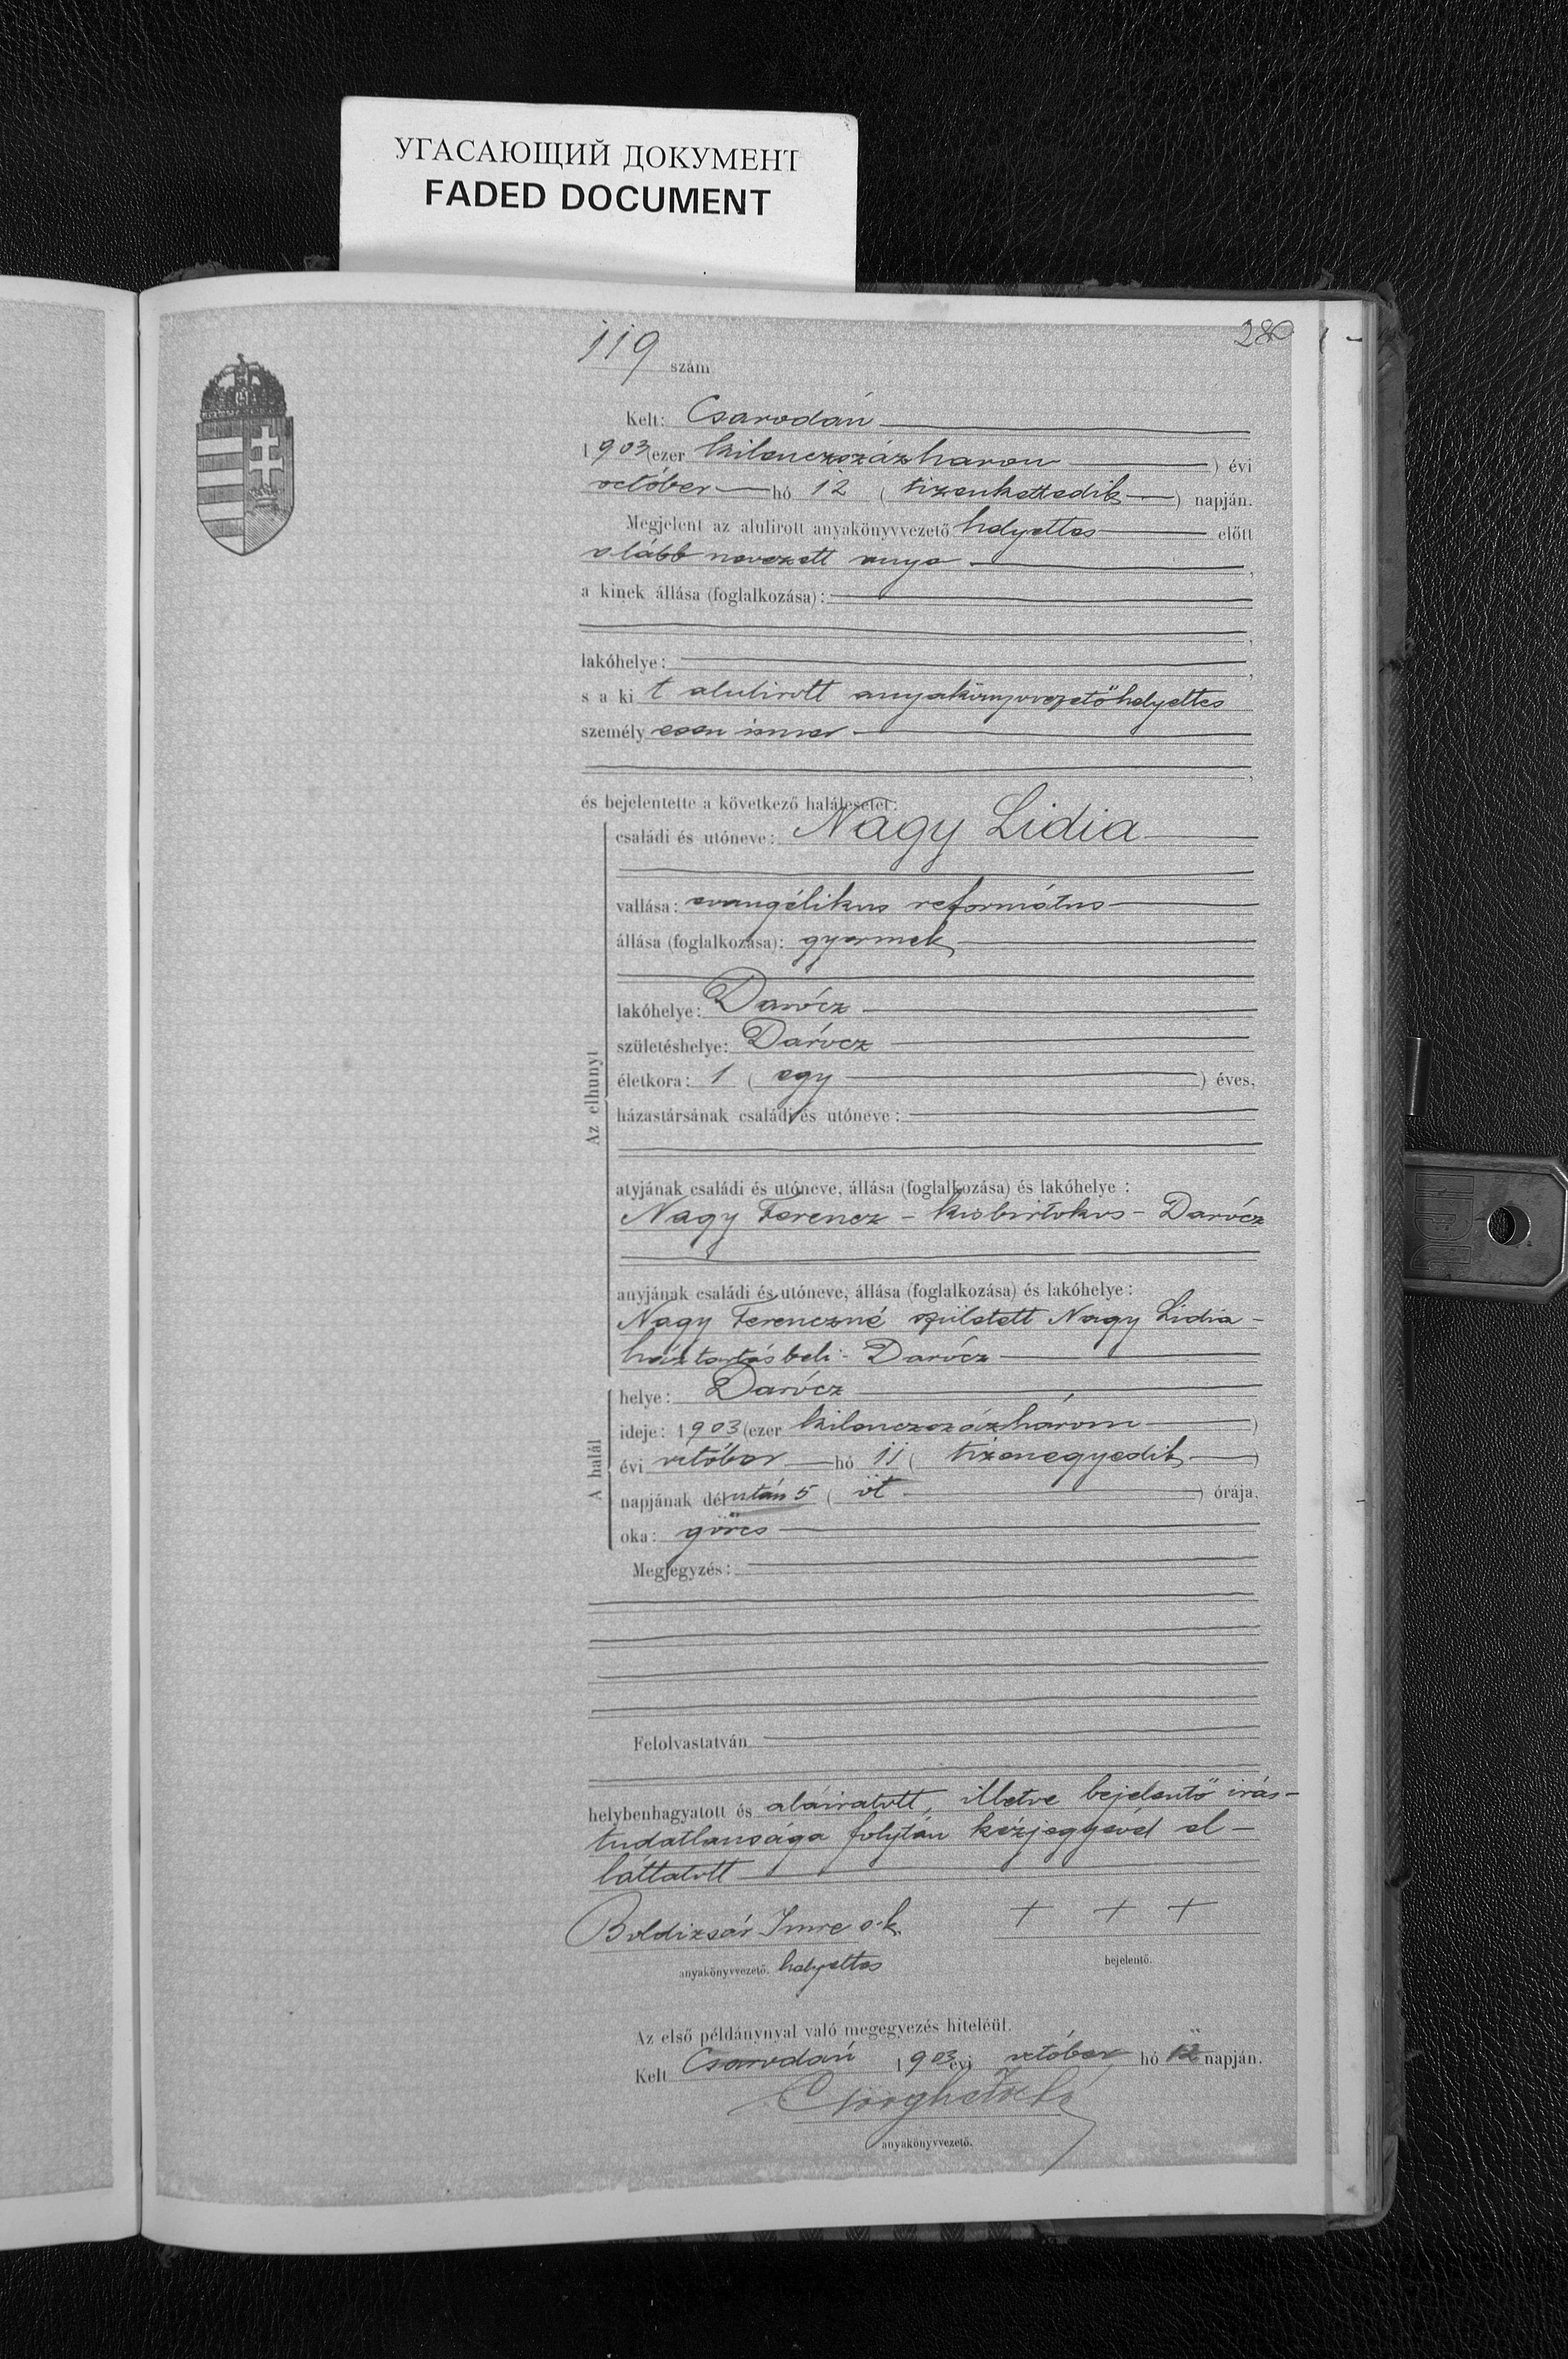 УГАСАЮЩИЙ ДОКУМЕНТ
FADED DOCUMENT
280
119 szám
Kelt: Csarodán
1903 (ezer kilenczszázhárom) évi
október hó 12 (tizenkettedik) napján.
Megjelent az alulirott anyakönyvvezető helyettes előtt
alább nevezett anya,
a kinek állása (foglalkozása):
lakóhelye:
s a kit alulirott anyakönyvvezetőhelyettes
személyesen ismer
és bejelentette a következő halálesetet:
Az elhunyt
családi és utóneve: Nagy Lidia
vallása: evangélikus református
állása (foglalkozása): gyermek
lakóhelye: Darócz
születéshelye: Darócz
életkora: 1 (egy) éves,
házastársának családi és utóneve:
atyjának családi és utóneve, állása (foglalkozása) és lakóhelye:
Nagy Ferencz - kisbirtokos - Darócz
anyjának családi és utóneve, állása (foglalkozása) és lakóhelye:
Nagy Ferenczné született Nagy Lidia -
háztartásbeli - Darócz
A halál
helye: Darócz
ideje: 1903 (ezer kilenczszázhárom)
évi október hó 11 (tizenegyedik)
napjának délután 5 (öt) órája.
oka: görcs
Megjegyzés:
Felolvastatván
helybenhagyatott és aláiratott, illetve bejelentő irás-
tudatlansága folytán kézjegyével el-
láttatott
Boldizsár Imre s.k. + + +
anyakönyvvezető. helyettes bejelentő.
Az első példánynyal való megegyezés hiteléül.
Kelt Csarodán 1903 évi október hó 12 napján.
anyakönyvvezető.